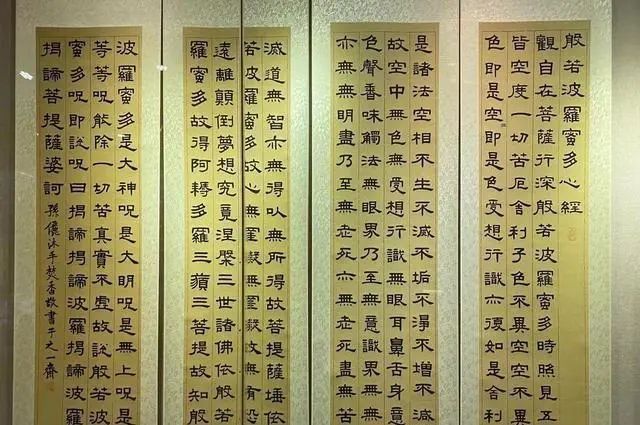 般若波羅蜜多心經
觀自在菩薩行深般若波羅蜜多時照見五
皆空度一切苦厄舍利子色不異空空不異
色即是空空即是色受想行識亦復如是舍利
是諸法空相不生不滅不垢不淨不增不減
故空中無色無受想行識無眼耳鼻舌身意
色聲香味觸法無眼界乃至無意識界無無
亦無無明盡乃至無老死亦無老死盡無苦
滅道無智亦無得以無所得故菩提薩埵依
若波羅蜜多故心無罣礙無罣礙故無有恐
遠離顛倒夢想究竟涅槃三世諸佛依般若
羅蜜多故得阿耨多羅三藐三菩提故知般
波羅蜜多是大神呪是大明呪是無上呪是
等等呪能除一切苦真實不虛故說般若波
蜜多呪即說呪曰揭諦揭諦波羅揭諦波羅
揭諦菩提薩婆訶 孫儀沐手焚香敬書于之一齋